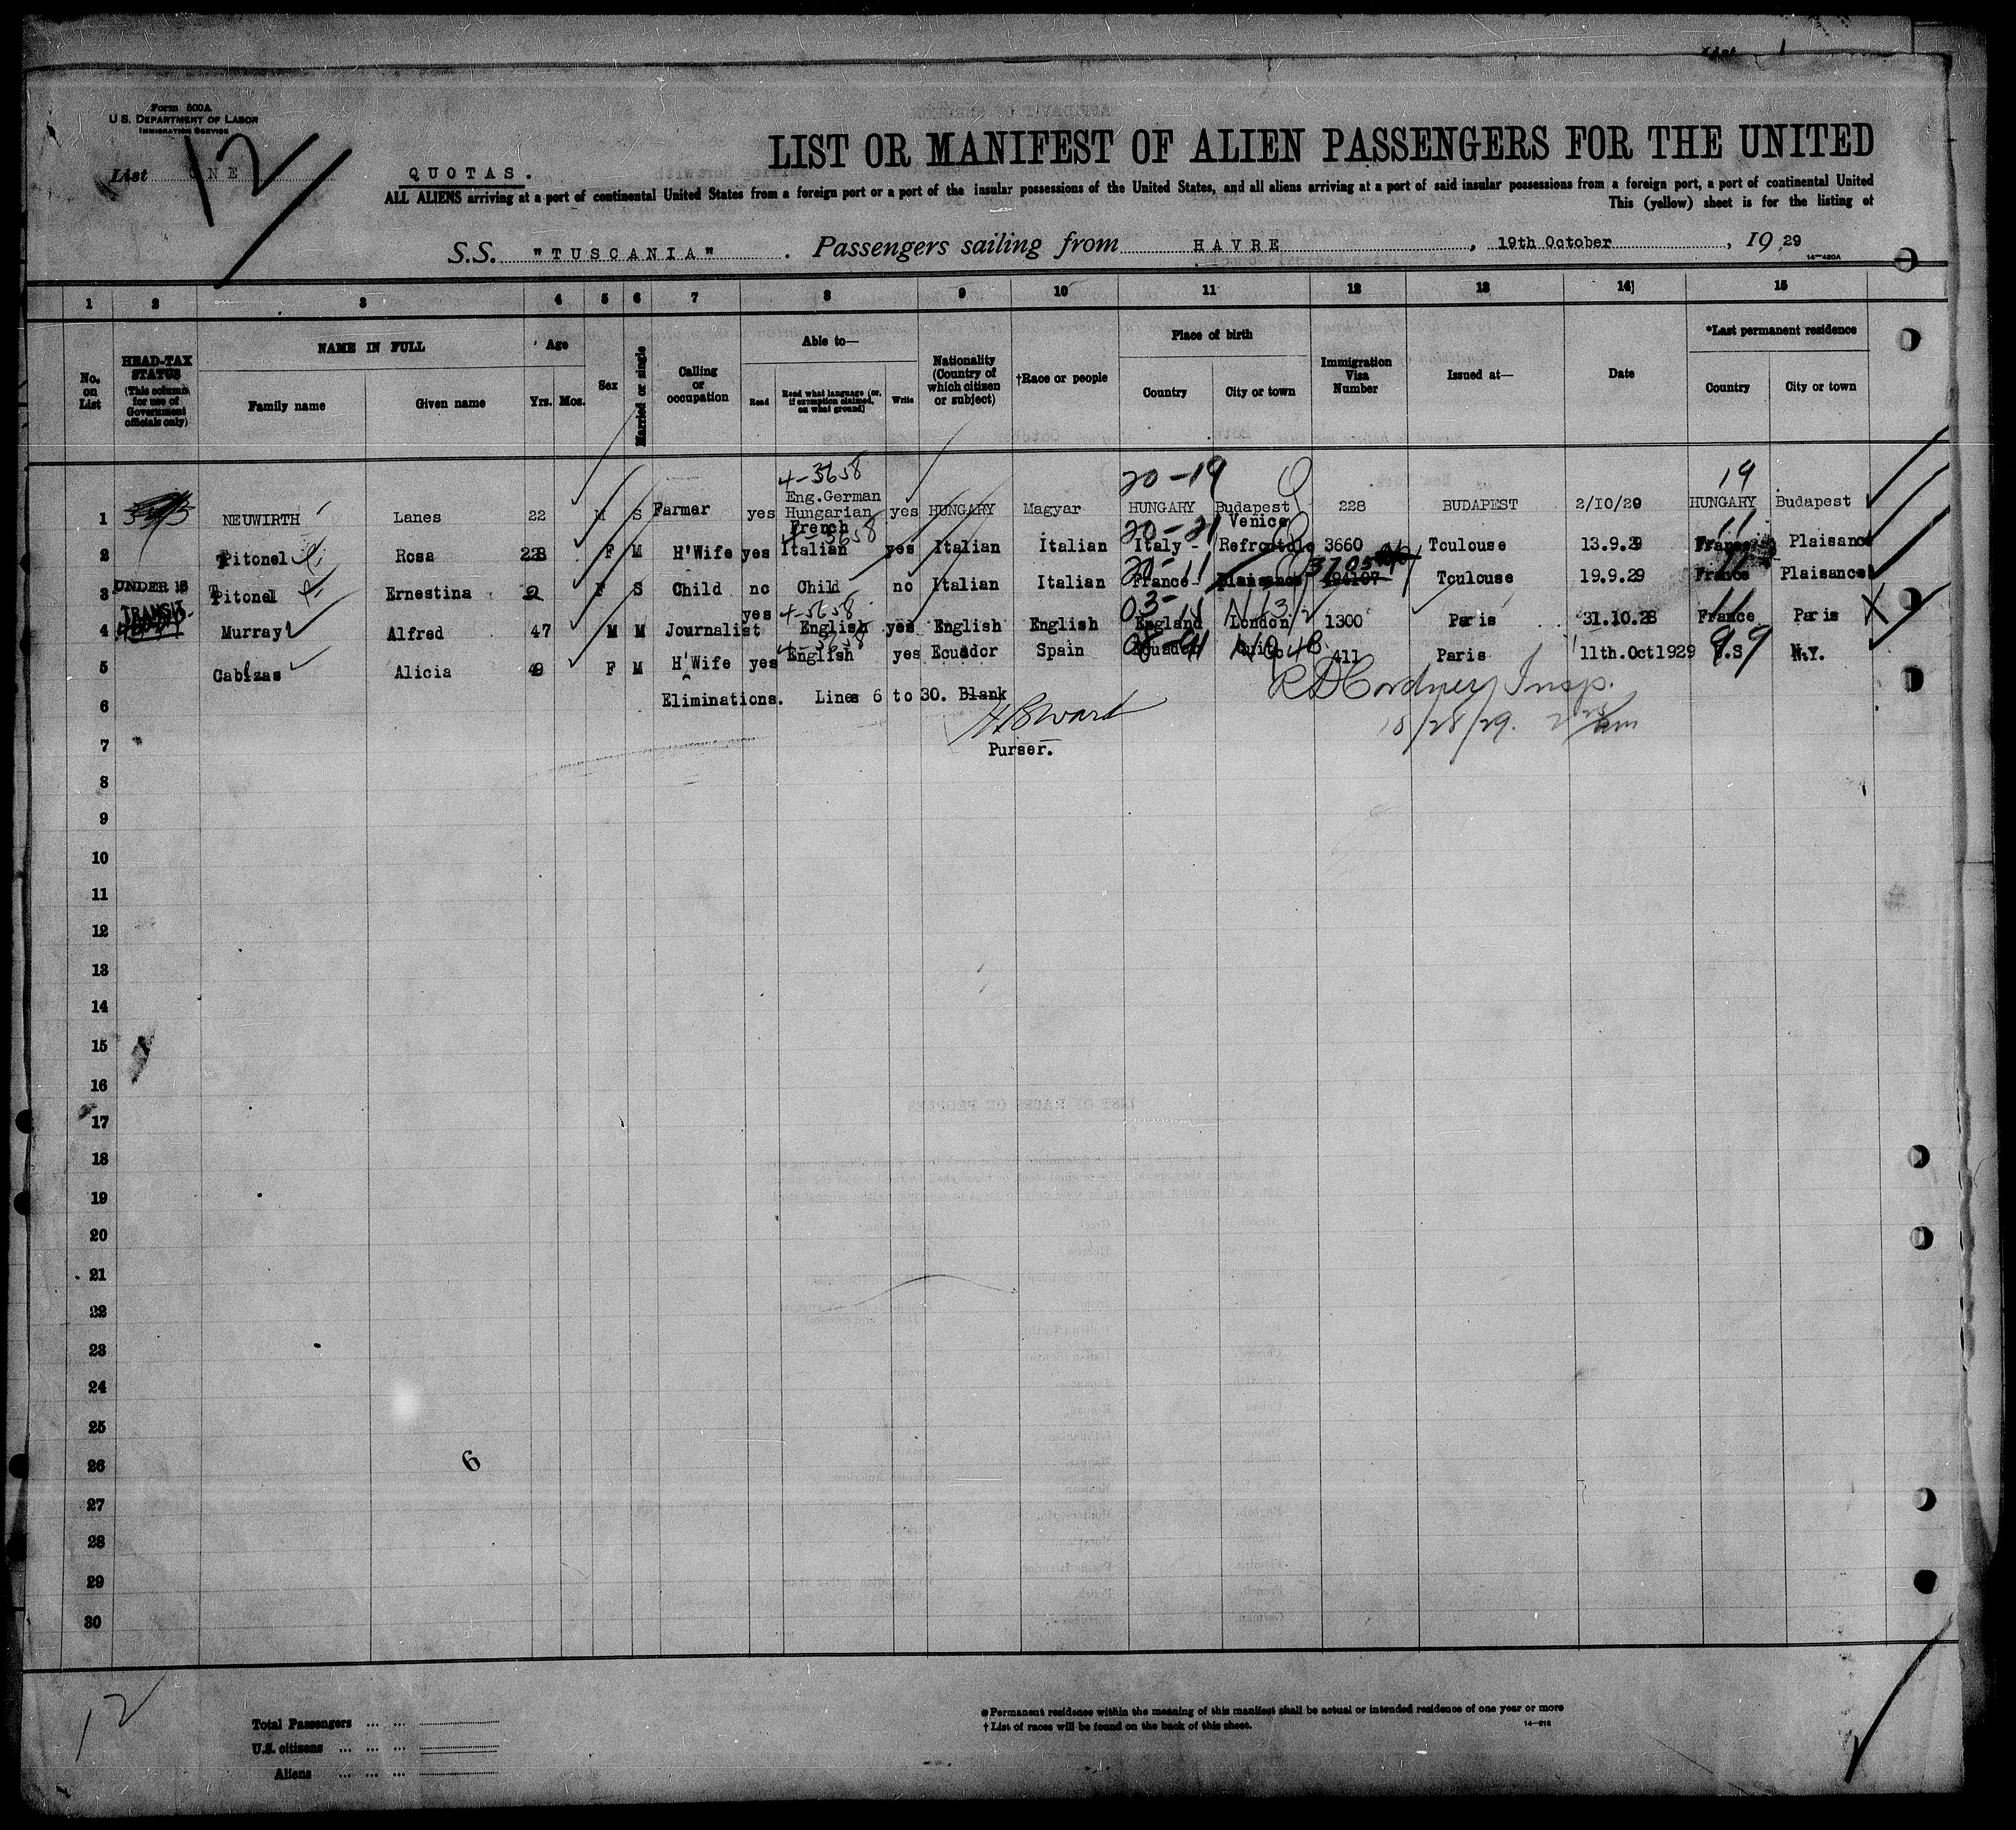 List 1
Form 500A
U.S. DEPARTMENT OF LABOR
IMMIGRATION SERVICE
List ONE
12
QUOTAS.
LIST OR MANIFEST OF ALIEN PASSENGERS FOR THE UNITED
ALL ALIENS arriving at a port of continental United States from a foreign port or a port of the insular possessions of the United States, and all aliens arriving at a port of said insular possessions from a foreign port, a port of continental United
This (yellow) sheet is for the listing of
S.S. "TUSCANIA". Passengers sailing from HAVRE, 19th October, 19 29
14-420A
1 2 3 4 5 6 7 8 9 10 11 12 13 14 15
No. on List
HEAD-TAX STATUS (This column for use of Government officials only)
NAME IN FULL
Family name Given name
Age
Yrs. Mos.
Sex
Married or single
Calling or occupation
Able to—
Read Read what language [or, if exemption claimed, on what ground] Write
Nationality (Country of which citizen or subject)
†Race or people
Place of birth
Country City or town
Immigration Visa Number
Issued at—
Date
*Last permanent residence
Country City or town
4-3658 20-19 19
1 NEUWIRTH Lanes 22 M S Farmer yes Eng.German Hungarian French yes HUNGARY Magyar HUNGARY Budapest 228 BUDAPEST 2/10/29 HUNGARY Budapest
4-3658 20-21 11
2 Pitonel Rosa F M H'Wife yes Italian yes Italian Italian Italy Venice 3660 Toulouse 13.9.29 France Plaisance
20-11 3705 11
3 UNDER 16 Pitonel Ernestina 2 F S Child no Child no Italian Italian France Plaisance Toulouse 19.9.29 France Plaisance
4-3658 11
4 TRANSIT Murray Alfred 47 M M Journalist yes English yes English English England London 1300 Paris 31.10.28 France Paris
4-3658 99
5 Cabizas Alicia 49 F M H'Wife yes English yes Ecuador Spain Ecuador Quito 411 Paris 11th.Oct1929 U.S N.Y.
6 Eliminations. Lines 6 to 30. Blank
Insp.
7 Purser.
8
9
10
11
12
13
14
15
16
17
18
19
20
21
22
23
24
25
26
6
27
28
29
30
12
Total Passengers ... ...
U.S. citizens ... ... ...
Aliens ... ... ...
*Permanent residence within the meaning of this manifest shall be actual or intended residence of one year or more
†List of races will be found on the back of this sheet.
14-218